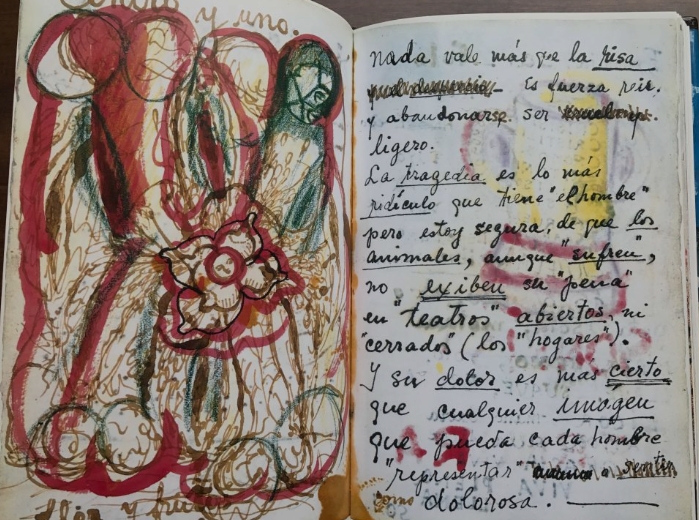 y uno.
flor y fruto
nada vale más que la risa
Es fuerza reir.
y abandonarse. ser
ligero.
La tragedia es lo más
ridículo que tiene "el hombre"
pero estoy segura, de que los
animales, aunque "sufren",
no exiben su "pena"
en "teatros" abiertos, ni
"cerrados" (los "hogares").
Y su dolor es mas cierto
que cualquier imágen
que pueda cada hombre
"representar" o sentir
como dolorosa.